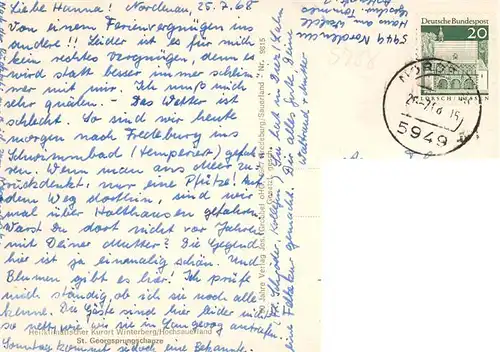 Liebe Hanna! Nordenau, 25.7.68
Von einem Ferienvergnügen ins
andere!! Leider ist es für mich
kein rechtes Vergnügen, denn es
wird statt besser immer schlim-
mer mit mir. Ich muß mich
sehr quälen. - Das Wetter ist
schlecht. So sind wir heute
morgen nach Fredeburg ins
Schwimmbad (temperiert) gefah-
ren. Wenn man ans Meer zu-
rückdenkt, nur eine Pfütze! Auf
dem Weg dorthin, sind wir
mal über Holthausen gefahren.
Warst Du dort nicht vor Jahren
mit Deiner Mutter? Die Gegend
hier ist ja einmalig schön. Und
Blumen gibt es hier! Ich prüfe
mich ständig, ob ich sie noch alle
kenne. Die Gäste sind hier leider nicht
so nett, wie wir sie in Langeoog antrafen.
Sonntag kommt jedoch eine Bekannte
Heilklimatischer Kurort Winterberg/Hochsauerland
St. Georgsprungschanze
Jahre Verlag Jos. Grobbel oHG, Fredeburg/Sauerland * Nr. 9815
Gesetzl. gesch.
Dr. Schröder, Kollegin, hat in Diez/Lahn
eine Faltkur gemacht. Dir alles Gute Deine
Waltraud + Mutter
5949 Nordenau
Deutsche Bundespost
20
LORSCH/HESSEN
5949